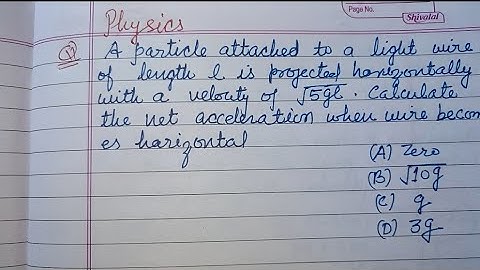 Page No.
Shivalal
Physics
A particle attached to a light wire
of length l is projected horizontally
with a velocity of √5gl. Calculate
the net acceleration when wire becom
es harizontal
(A) Zero
(B) √10g
(C) g
(D) 3g